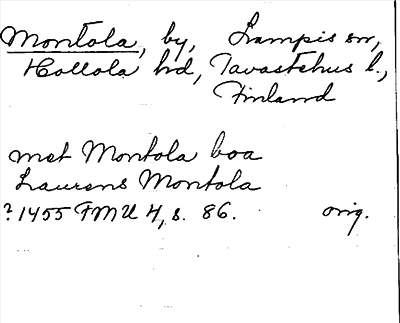 Montola, by, Lampis sn,
Hollola hd, Tavastehus l.,
Finland
met Montola boa
Laurens Montola
? 1455 FMU 4, s. 86. orig.